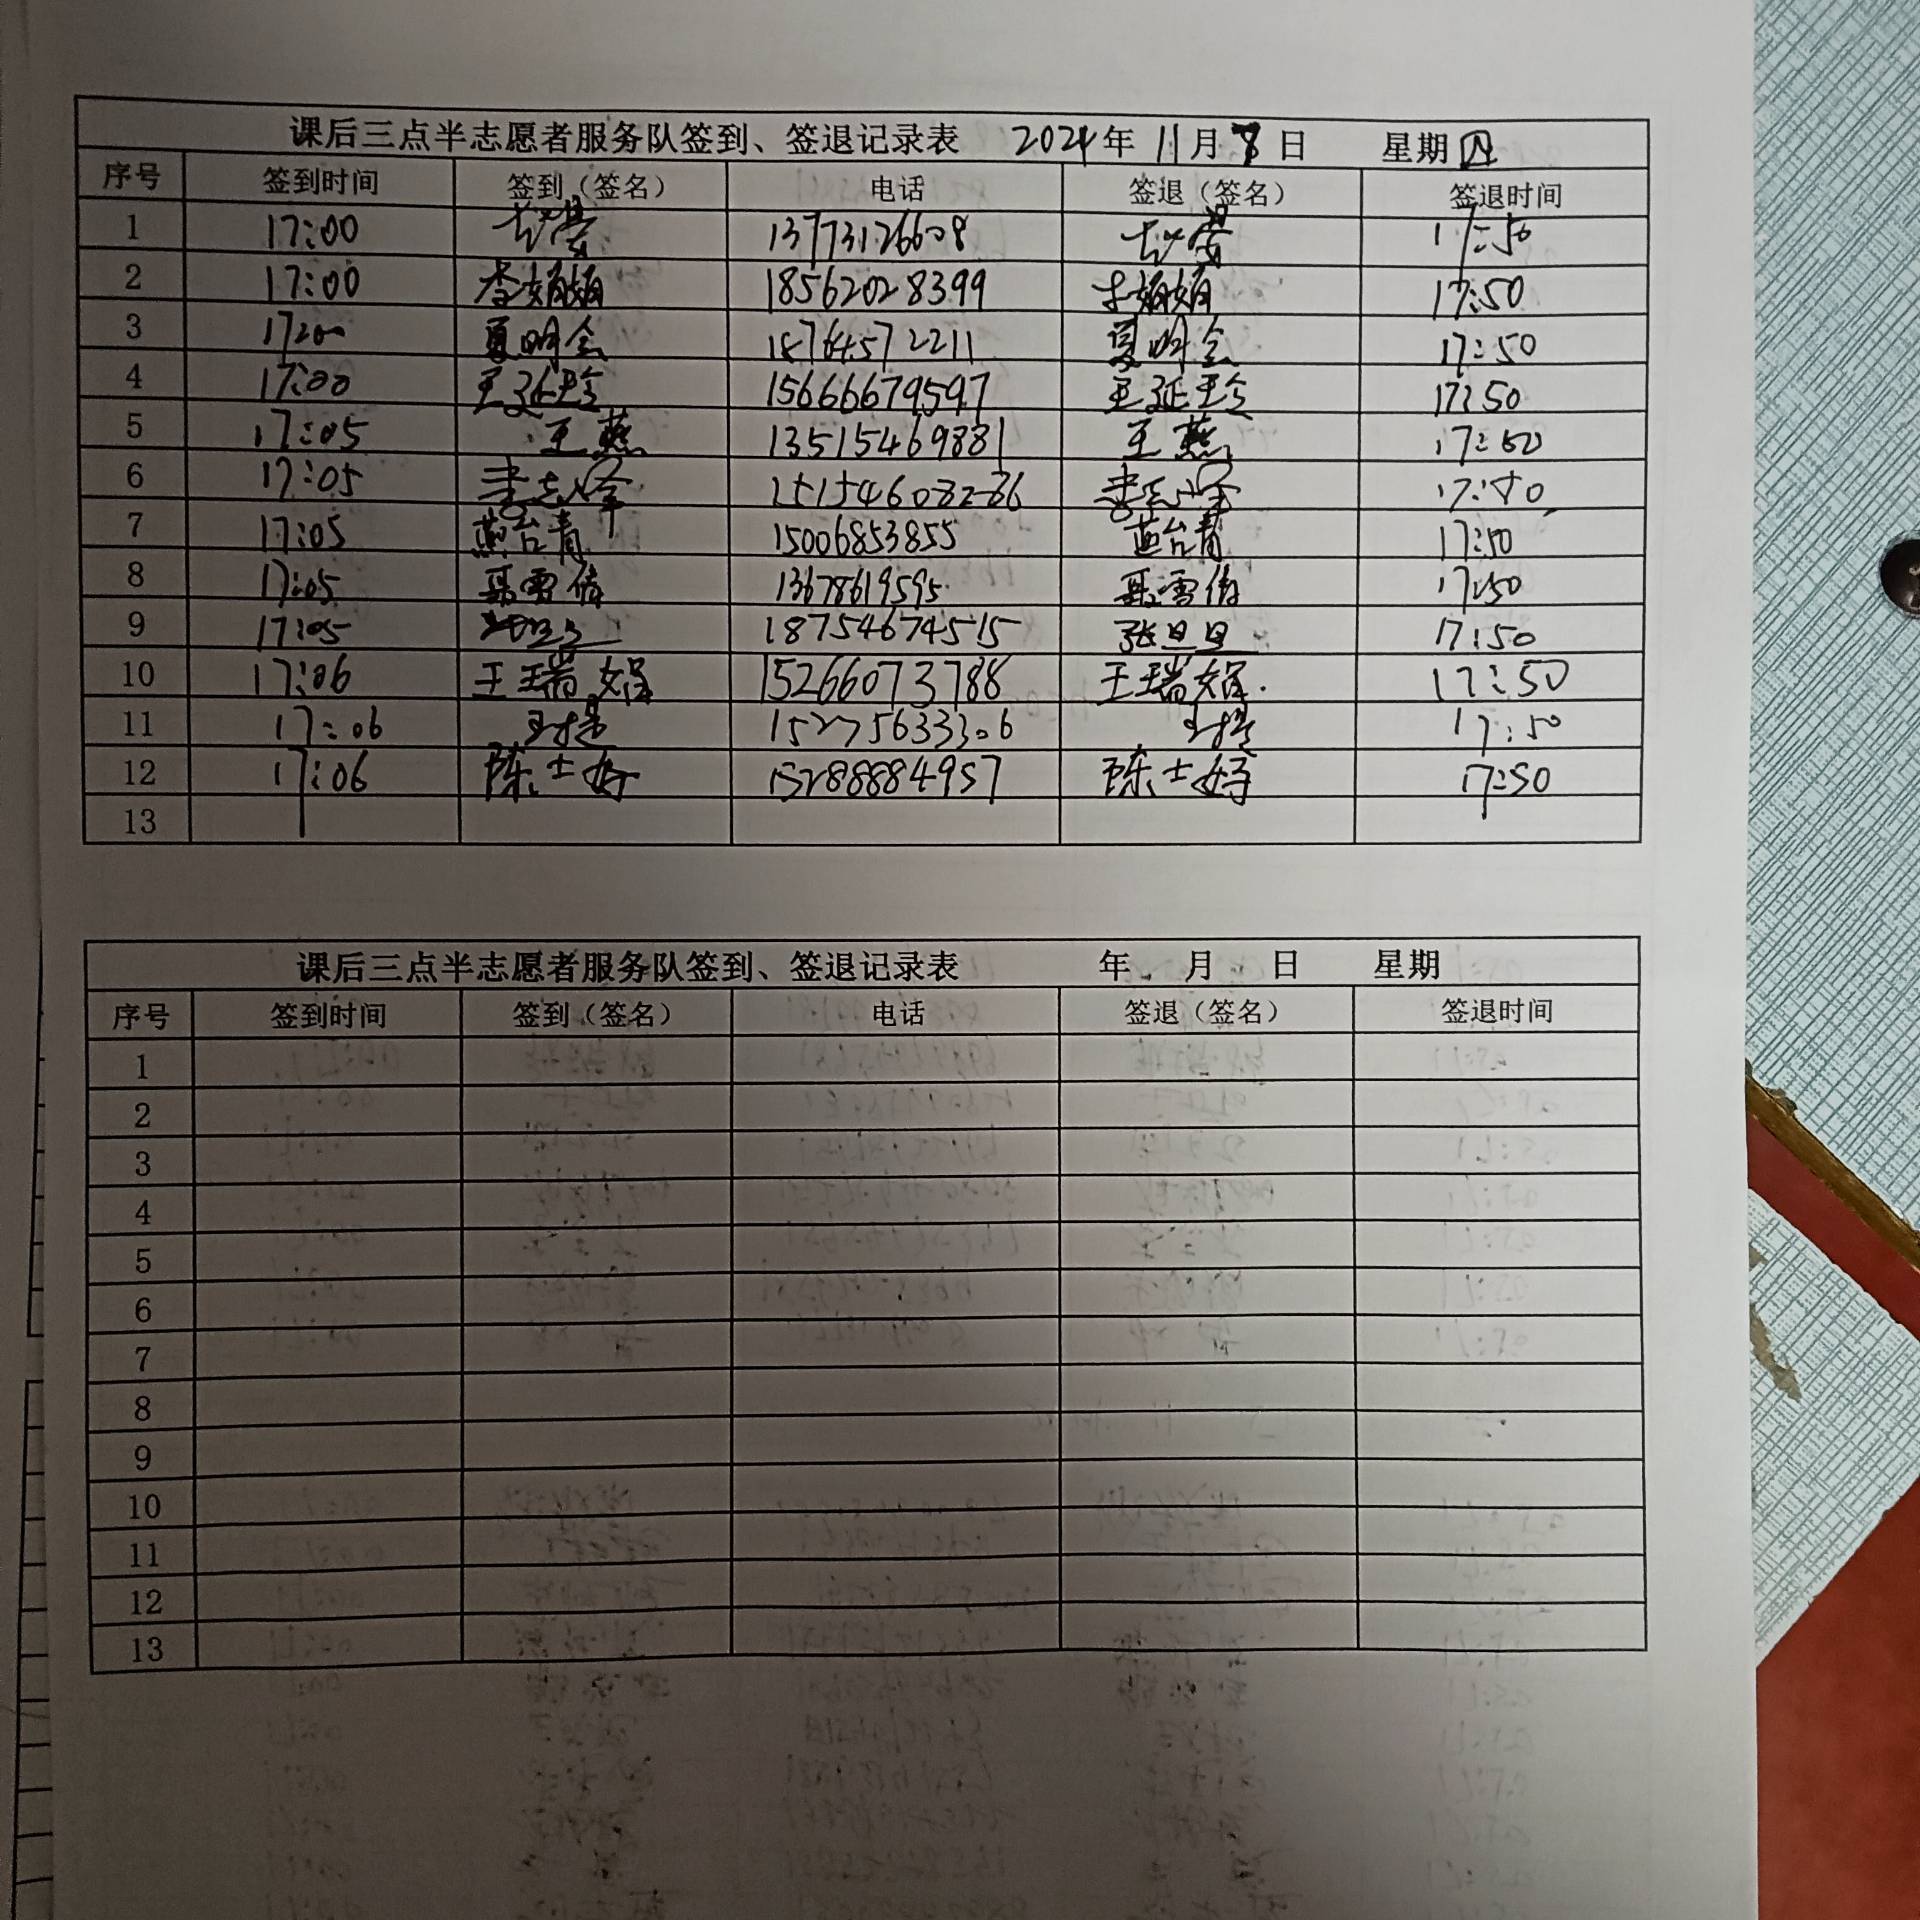 课后三点半志愿者服务队签到、签退记录表 2024年 11月 日 星期四
序号 签到时间 签到（签名） 电话 签退（签名） 签退时间
1 17:00 13773126608 17:50
2 17:00 李娟娟 18562028399 李娟娟 17:50
3 17:00 夏明会 18764572211 夏明会 17:50
4 17:00 王延玲 15666679597 王延玲 17:50
5 17:05 王燕 13515469881 王燕 17:50
6 17:05 李志峰 15154608286 李志峰 17:50
7 17:05 燕台青 15006853855 燕台青 17:50
8 17:05 聂雪倩 13678619595 聂雪倩 17:50
9 17:05 18754674515 张旦旦 17:50
10 17:06 王瑞娟 15266073788 王瑞娟 17:50
11 17:06 15275633306 17:50
12 17:06 陈士好 15288884957 陈士好 17:50
13
课后三点半志愿者服务队签到、签退记录表 年 月 日 星期
序号 签到时间 签到（签名） 电话 签退（签名） 签退时间
1
2
3
4
5
6
7
8
9
10
11
12
13